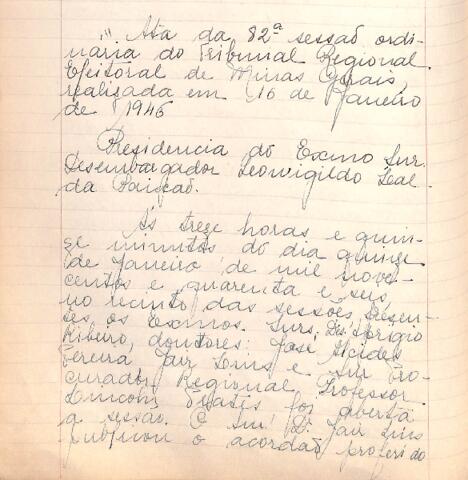 Ata da 82ª sessão ordi-
naria do Tribunal Regional
Eleitoral de Minas Gerais,
realisada em 16 de Janeiro
de 1946
Presidencia do Exmo Snr.
Desembargador Leovigildo Leal
da Paixão.
Ás treze horas e quin-
ze minutos do dia quinze
de Janeiro de mil nove-
centos e quarenta e seis,
no recinto das sessões, presen-
tes, os Exmos. Snrs. Des.
Ribeiro, doutores: José Alcides
Pereira, Jair Lins e Snr Pro-
curador Regional, Professor
Onofre foi aberta
a sessão. O Snr. Dr. Jair Lins
publicou o acordão proferido